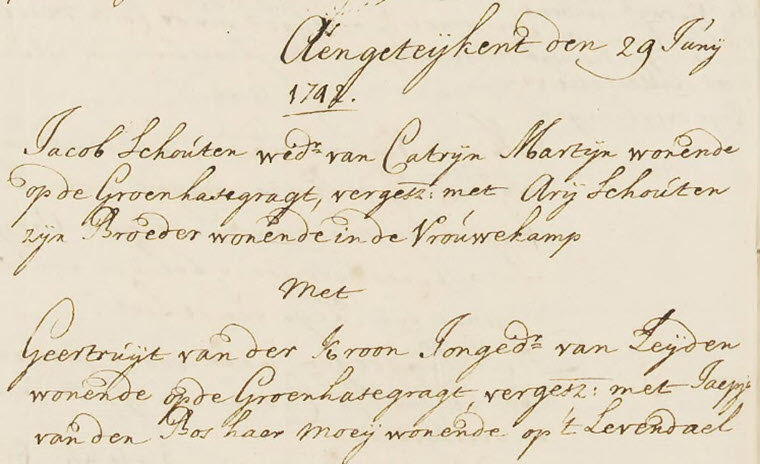 Aengeteijkent den 29 Junij
1742.
Jacob Schouten wedr van Catrijn Martijn wonende
op de Groenhasegragt, vergesz: met Arij Schouten
zijn Broeder wonende in de Vrouwekamp
Met
Geertruijt van der Kroon Jongedr van Leijden
wonende op de Groenhasegragt vergesz: met Jaepje
van den Bos haar Moeij wonende op 't Levendael